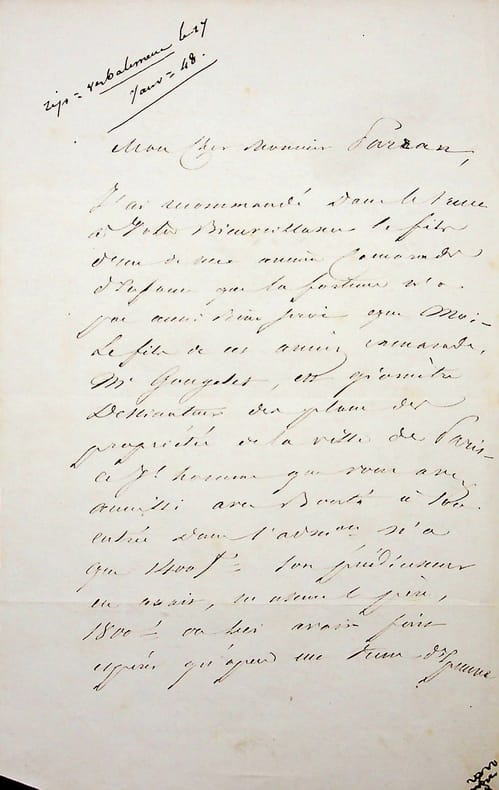 rép = verbalement le 27
Janv = 48.
Mon Cher Monsieur Parzan,
J'ai recommandé dans le tems
à Votre Bienveillance le fils
d'un de mes anciens Camarades
d'Enfance que la fortune n'a
pas aussi bien servi que Moi –
Le fils de cet ancien camarade,
Mr Gougelet, est géomètre
Dessinateur des plans des
propriétés de la ville de Paris –
Ce Je homme que vous avez
accueilli avec Bonté à son
entrée dans l'admon n'a
que 1400 f = Son prédécesseur
en avait, m'assure le père,
1800 f on lui avait fait
espérer qu'après un tems d'Epreuve